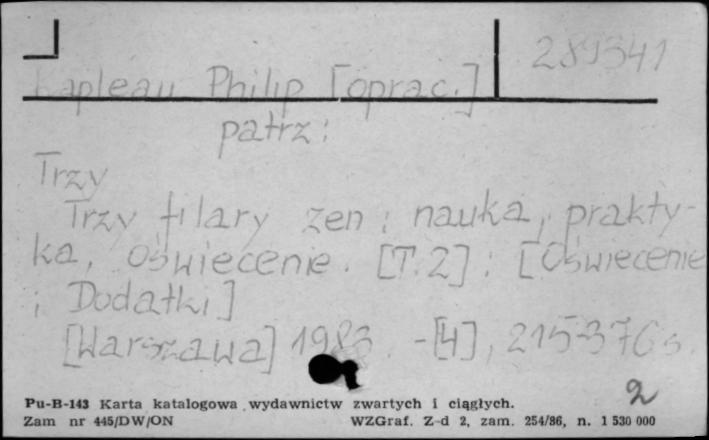 289341
Kapleau Philip [oprac.]
patrz:
Trzy
Trzy filary zen : nauka, prakty-
ka, oświecenie. [T. 2] : [Oświecenie
i Dodatki]
[Warszawa] 1983. -[4], 215-376 s.
2
Pu-B-143 Karta katalogowa wydawnictw zwartych i ciągłych.
Zam nr 445/DW/ON WZGraf. Z-d 2, zam. 254/86, n. 1 530 000